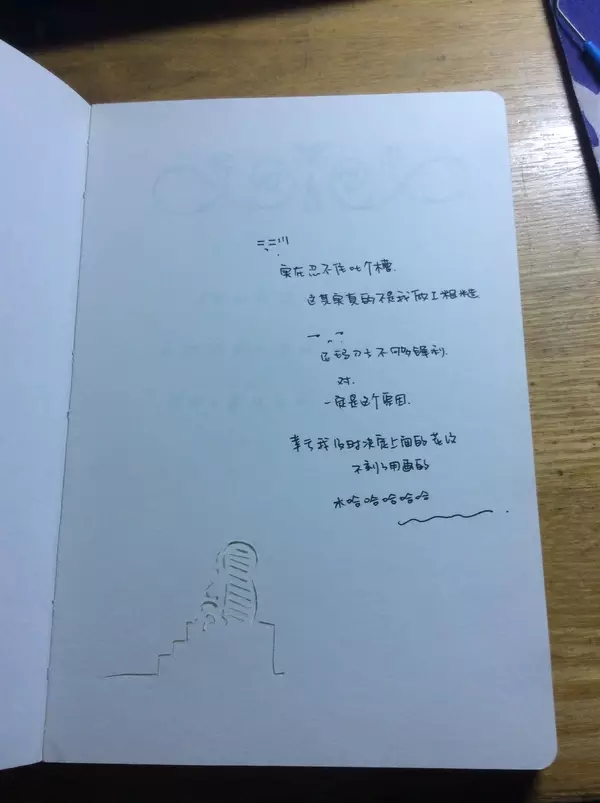 =_=|||
实在忍不住吐个槽.
这其实真的不是我做工粗糙
是刀片不够锋利.
对.
一定是这个原因.
幸亏我及时决定上面的花纹
不刻了用画的
哈哈哈哈哈